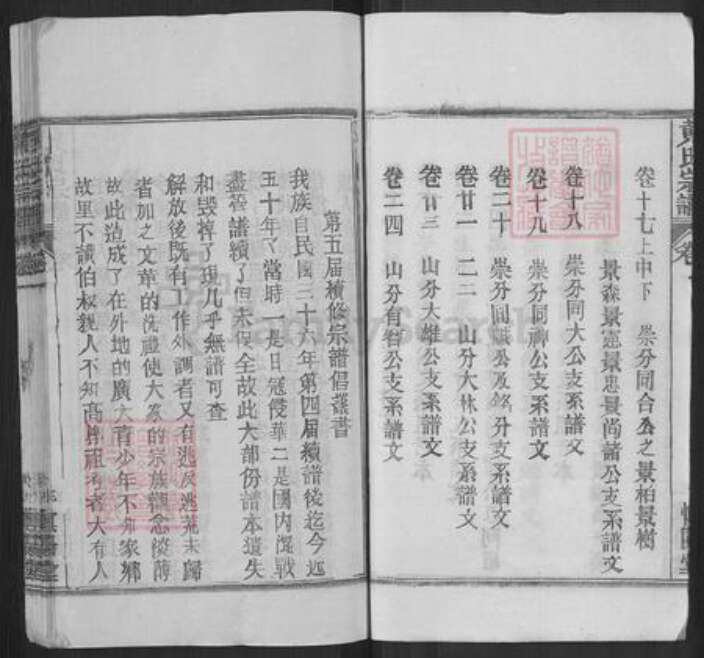 黃氏宗譜
卷十七上中下 崇分同合公之景柏景樹
景森景憲景惠景尚諸公支系譜文
卷十八 崇分同大公支系譜文
卷十九 崇分同禱公支系譜文
卷二十 崇分同 公及銘分支系譜文
卷廿一 二二 山分大林公支系譜文
卷廿三 山分大雄公支系譜文
卷二四 山分有智公支系譜文
第五屆續修宗譜倡 書
我族自民國三十六年第四屆續譜後迄今近
五十年了當時一是日寇侵華二是國内混戰
盡管譜續了但未保全故此大部份譜本遺失
和毀掉了現几乎無譜可查
解放後既有工作外調者又有逃反逃荒未歸
者加之文革的洗禮使大家的宗族觀念淡薄
故此造成了在外地的廣大青少年不知家鄉
故里不識伯叔親人不知高曾祖 者大有人
FamilySearch